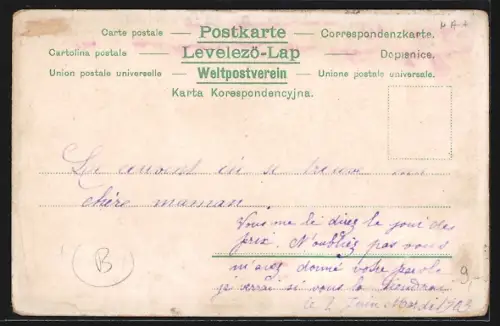 Carte postale — Postkarte — Correspondenzkarte.
Cartolina postale — Levelező-Lap — Dopisnice.
Union postale universelle — Weltpostverein — Unione postale universale.
Karta Korespondencyjna.
couvent où se trouve
chère maman.
Vous me le direz le jour des
prix. N'oubliez pas vous
m'avez donné votre parole
je verrai si vous la tiendrai
le 2 Juin Mardi 1903
B
9.-